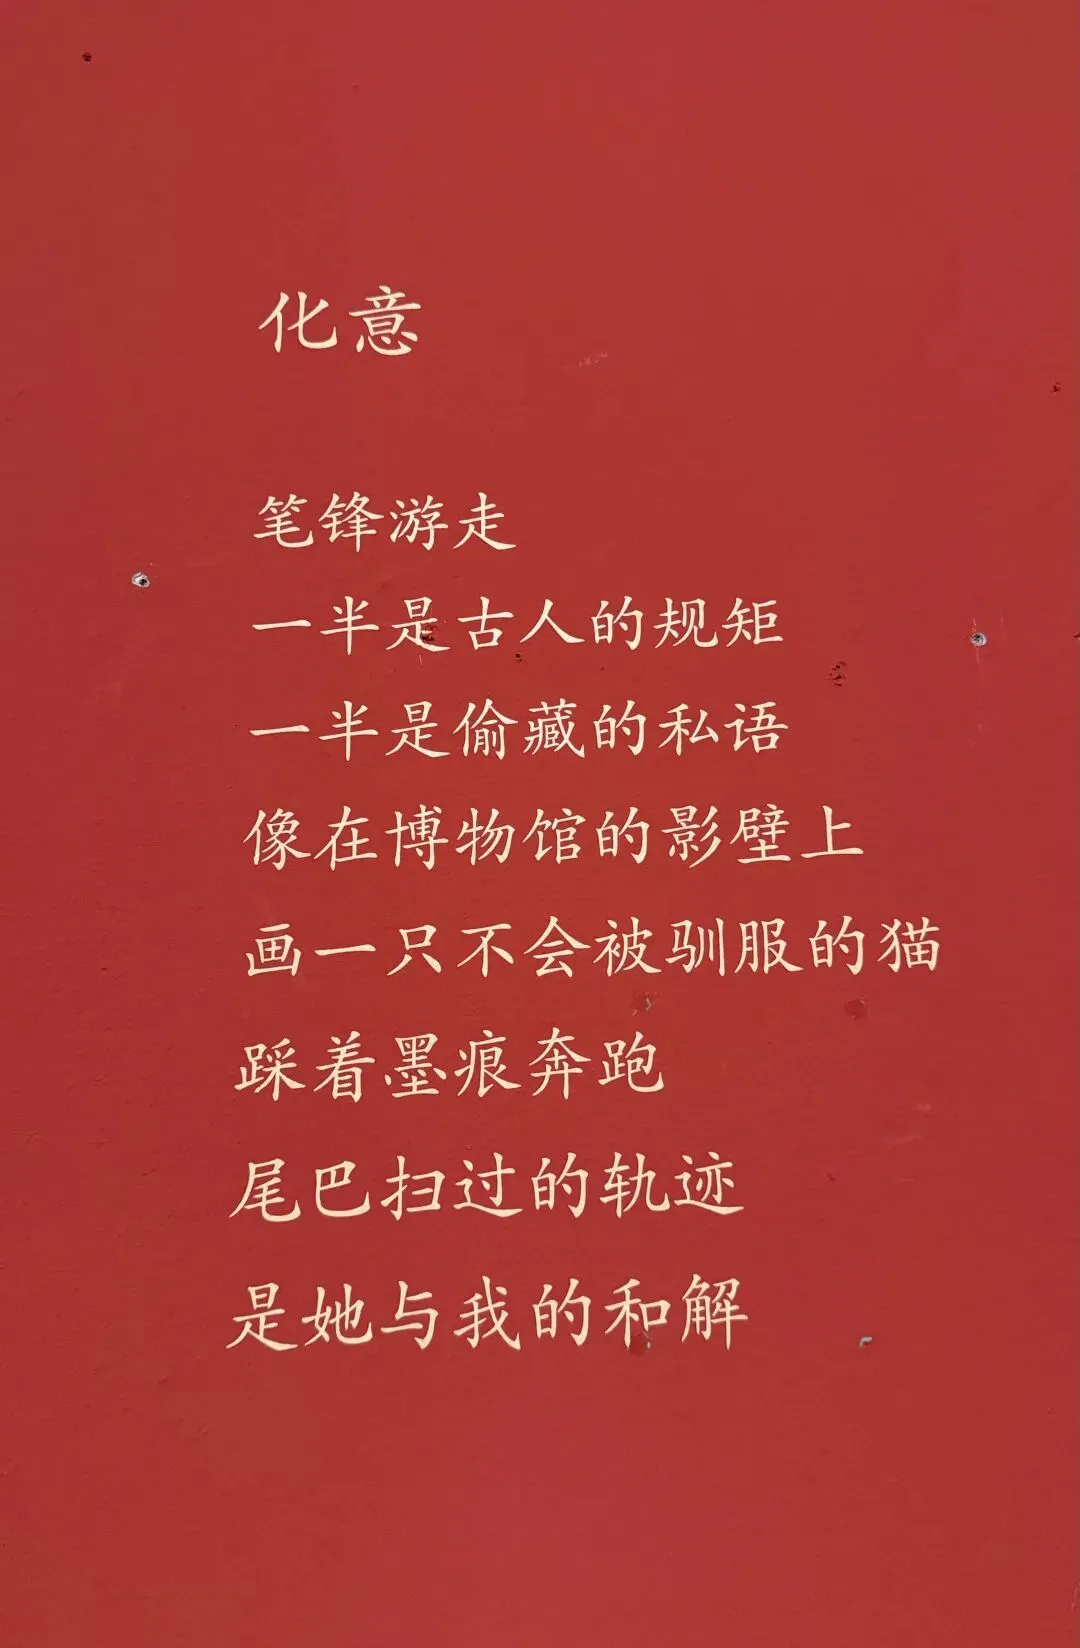 化意
笔锋游走
一半是古人的规矩
一半是偷藏的私语
像在博物馆的影壁上
画一只不会被驯服的猫
踩着墨痕奔跑
尾巴扫过的轨迹
是她与我的和解